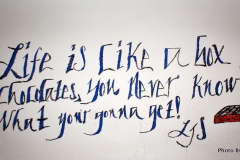 Life is Like a box
Chocolates, You Never Know
What your gonna get!
LJS
Photo B